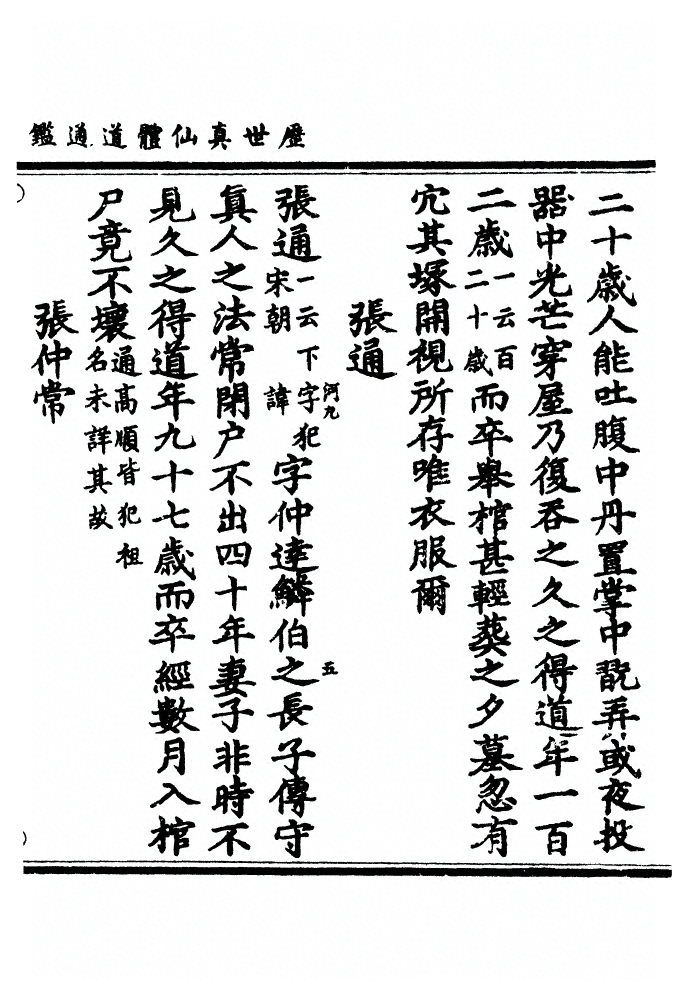 歷世真仙體道通鑑
二十歲人能吐腹中丹置掌中翫弄或夜投
器中光芒穿屋乃復吞之久之得道年一百
二歲一云百二十歲而卒舉棺甚輕葬之夕墓忽有
穴其塚開視所存唯衣服爾
張通
張通一云下字犯宋朝諱字仲達鱗伯之長子傳守
河九
五
真人之法常閉户不出四十年妻子非時不
見久之得道年九十七歲而卒經數月入棺
尸竟不壞通高順皆犯祖名未詳其故
張仲常